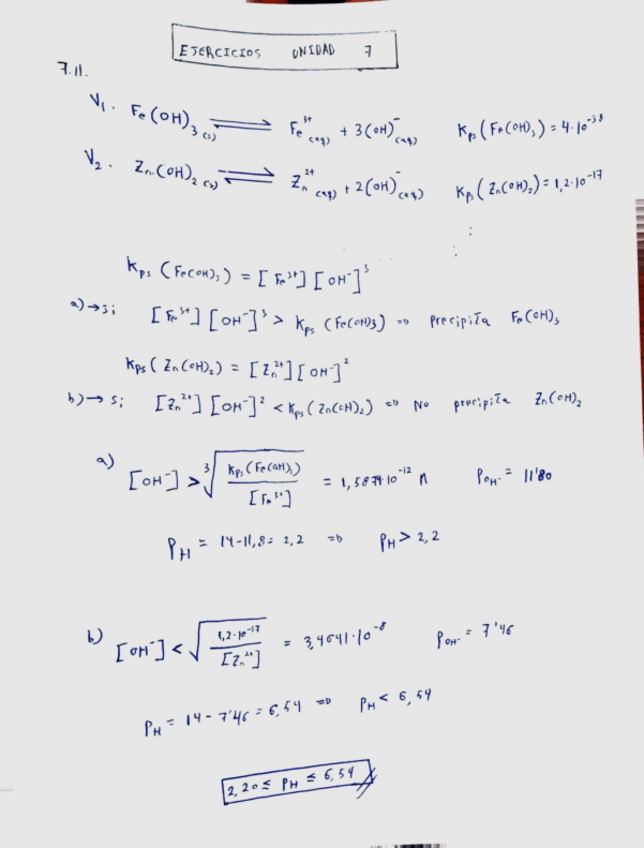 EJERCICIOS UNIDAD 7
7.11.
V₁. Fe(OH)₃ (s) ⇌ Fe³⁺(aq) + 3(OH)⁻(aq) Kps (Fe(OH)₃) = 4·10⁻³⁸
V₂. Zn(OH)₂ (s) ⇌ Zn²⁺(aq) + 2(OH)⁻(aq) Kps (Zn(OH)₂) = 1,2·10⁻¹⁷
Kps (Fe(OH)₃) = [Fe³⁺][OH⁻]³
a) → si [Fe³⁺][OH⁻]³ > Kps (Fe(OH)3) ⇒ Precipita Fe(OH)₃
Kps (Zn(OH)₂) = [Zn²⁺][OH⁻]²
b) → si [Zn²⁺][OH⁻]² < Kps (Zn(OH)₂) ⇒ No precipita Zn(OH)₂
a) [OH⁻] > ³√(Kps (Fe(OH)₃) / [Fe³⁺]) = 1,5874·10⁻¹² M POH⁻ = 11'80
PH = 14-11,8 = 2,2 ⇒ PH > 2,2
b) [OH⁻] < √(1,2·10⁻¹⁷ / [Zn²⁺]) = 3,4641·10⁻⁸ POH⁻ = 7'46
PH = 14 - 7'46 = 6,54 ⇒ PH < 6,54
2,20 ≤ PH ≤ 6,54